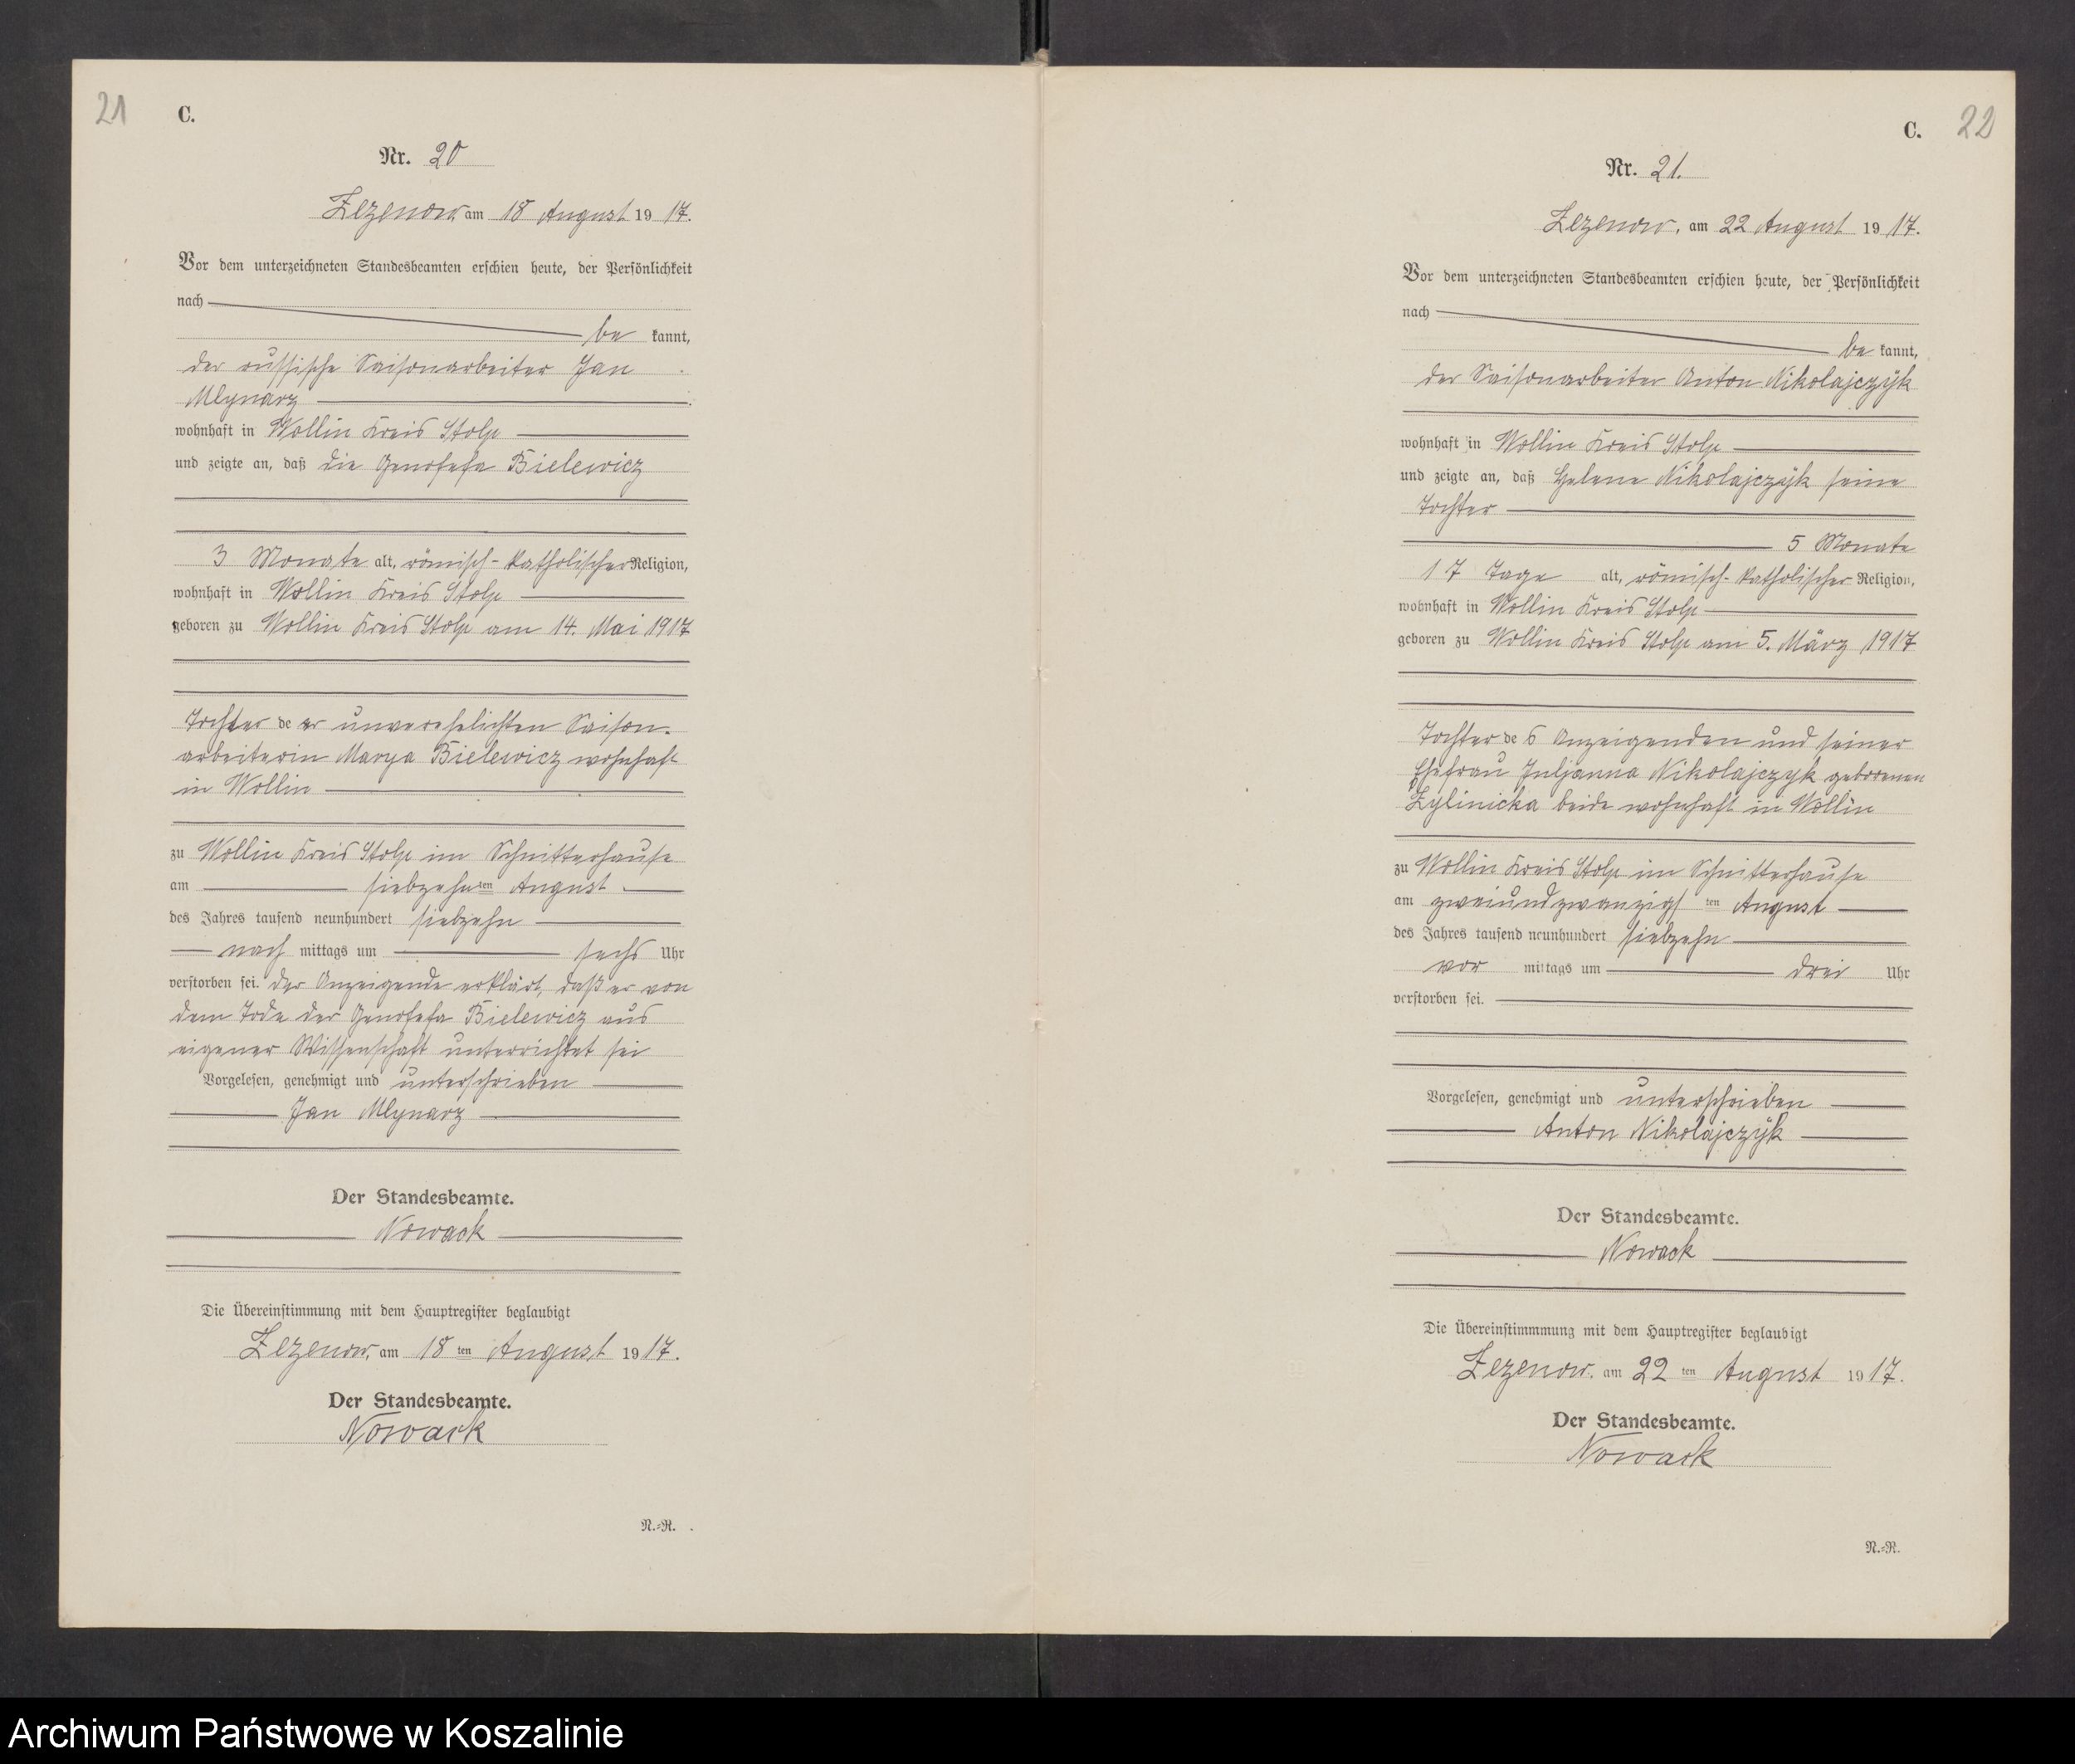 21
C.
Nr. 20
Zezenow am 18 August 1917.
Vor dem unterzeichneten Standesbeamten erschien heute, der Persönlichkeit
nach
be kannt,
der russische Saisonarbeiter Jan
Mlynarz
wohnhaft in Wollin Kreis Stolp
und zeigte an, daß die Genofefa Bielewicz
3 Monate alt, römisch-katholischer Religion,
wohnhaft in Wollin Kreis Stolp
geboren zu Wollin Kreis Stolp am 14. Mai 1917
Tochter de er unverehelichten Saison-
arbeiterin Marya Bielewicz wohnhaft
in Wollin
zu Wollin Kreis Stolp im Schnitterhause
am siebzehnten August
des Jahres tausend neunhundert siebzehn
nach mittags um sechs Uhr
verstorben sei. Der Anzeigende erklärt, daß er von
dem Tode der Genofefa Bielewicz aus
eigener Wissenschaft unterrichtet sei
Vorgelesen, genehmigt und unterschrieben
Jan Mlynarz
Der Standesbeamte.
Nowack
Die Übereinstimmung mit dem Hauptregister beglaubigt
Zezenow, am 18 ten August 1917.
Der Standesbeamte.
Nowack
N.=R.
C. 22
Nr. 21.
Zezenow, am 22 August 1917.
Vor dem unterzeichneten Standesbeamten erschien heute, der Persönlichkeit
nach
be kannt,
der Saisonarbeiter Anton Nikolajczÿk
wohnhaft in Wollin Kreis Stolp
und zeigte an, daß Helene Nikolajczÿk seine
Tochter
5 Monate
17 Tage alt, römisch-katholischer Religion,
wohnhaft in Wollin Kreis Stolp
geboren zu Wollin Kreis Stolp am 5. März 1917
Tochter de s Anzeigenden und seiner
Ehefrau Juljanna Nikolajczyk geborenen
Zylinicka beide wohnhaft in Wollin
zu Wollin Kreis Stolp im Schnitterhause
am zweiundzwanzigsten August
des Jahres tausend neunhundert siebzehn
vor mittags um drei Uhr
verstorben sei.
Vorgelesen, genehmigt und unterschrieben
Anton Nikolajczÿk
Der Standesbeamte.
Nowack
Die Übereinstimmmung mit dem Hauptregister beglaubigt
Zezenow. am 22 ten August 1917.
Der Standesbeamte.
Nowack
N.=R.
Archiwum Państwowe w Koszalinie